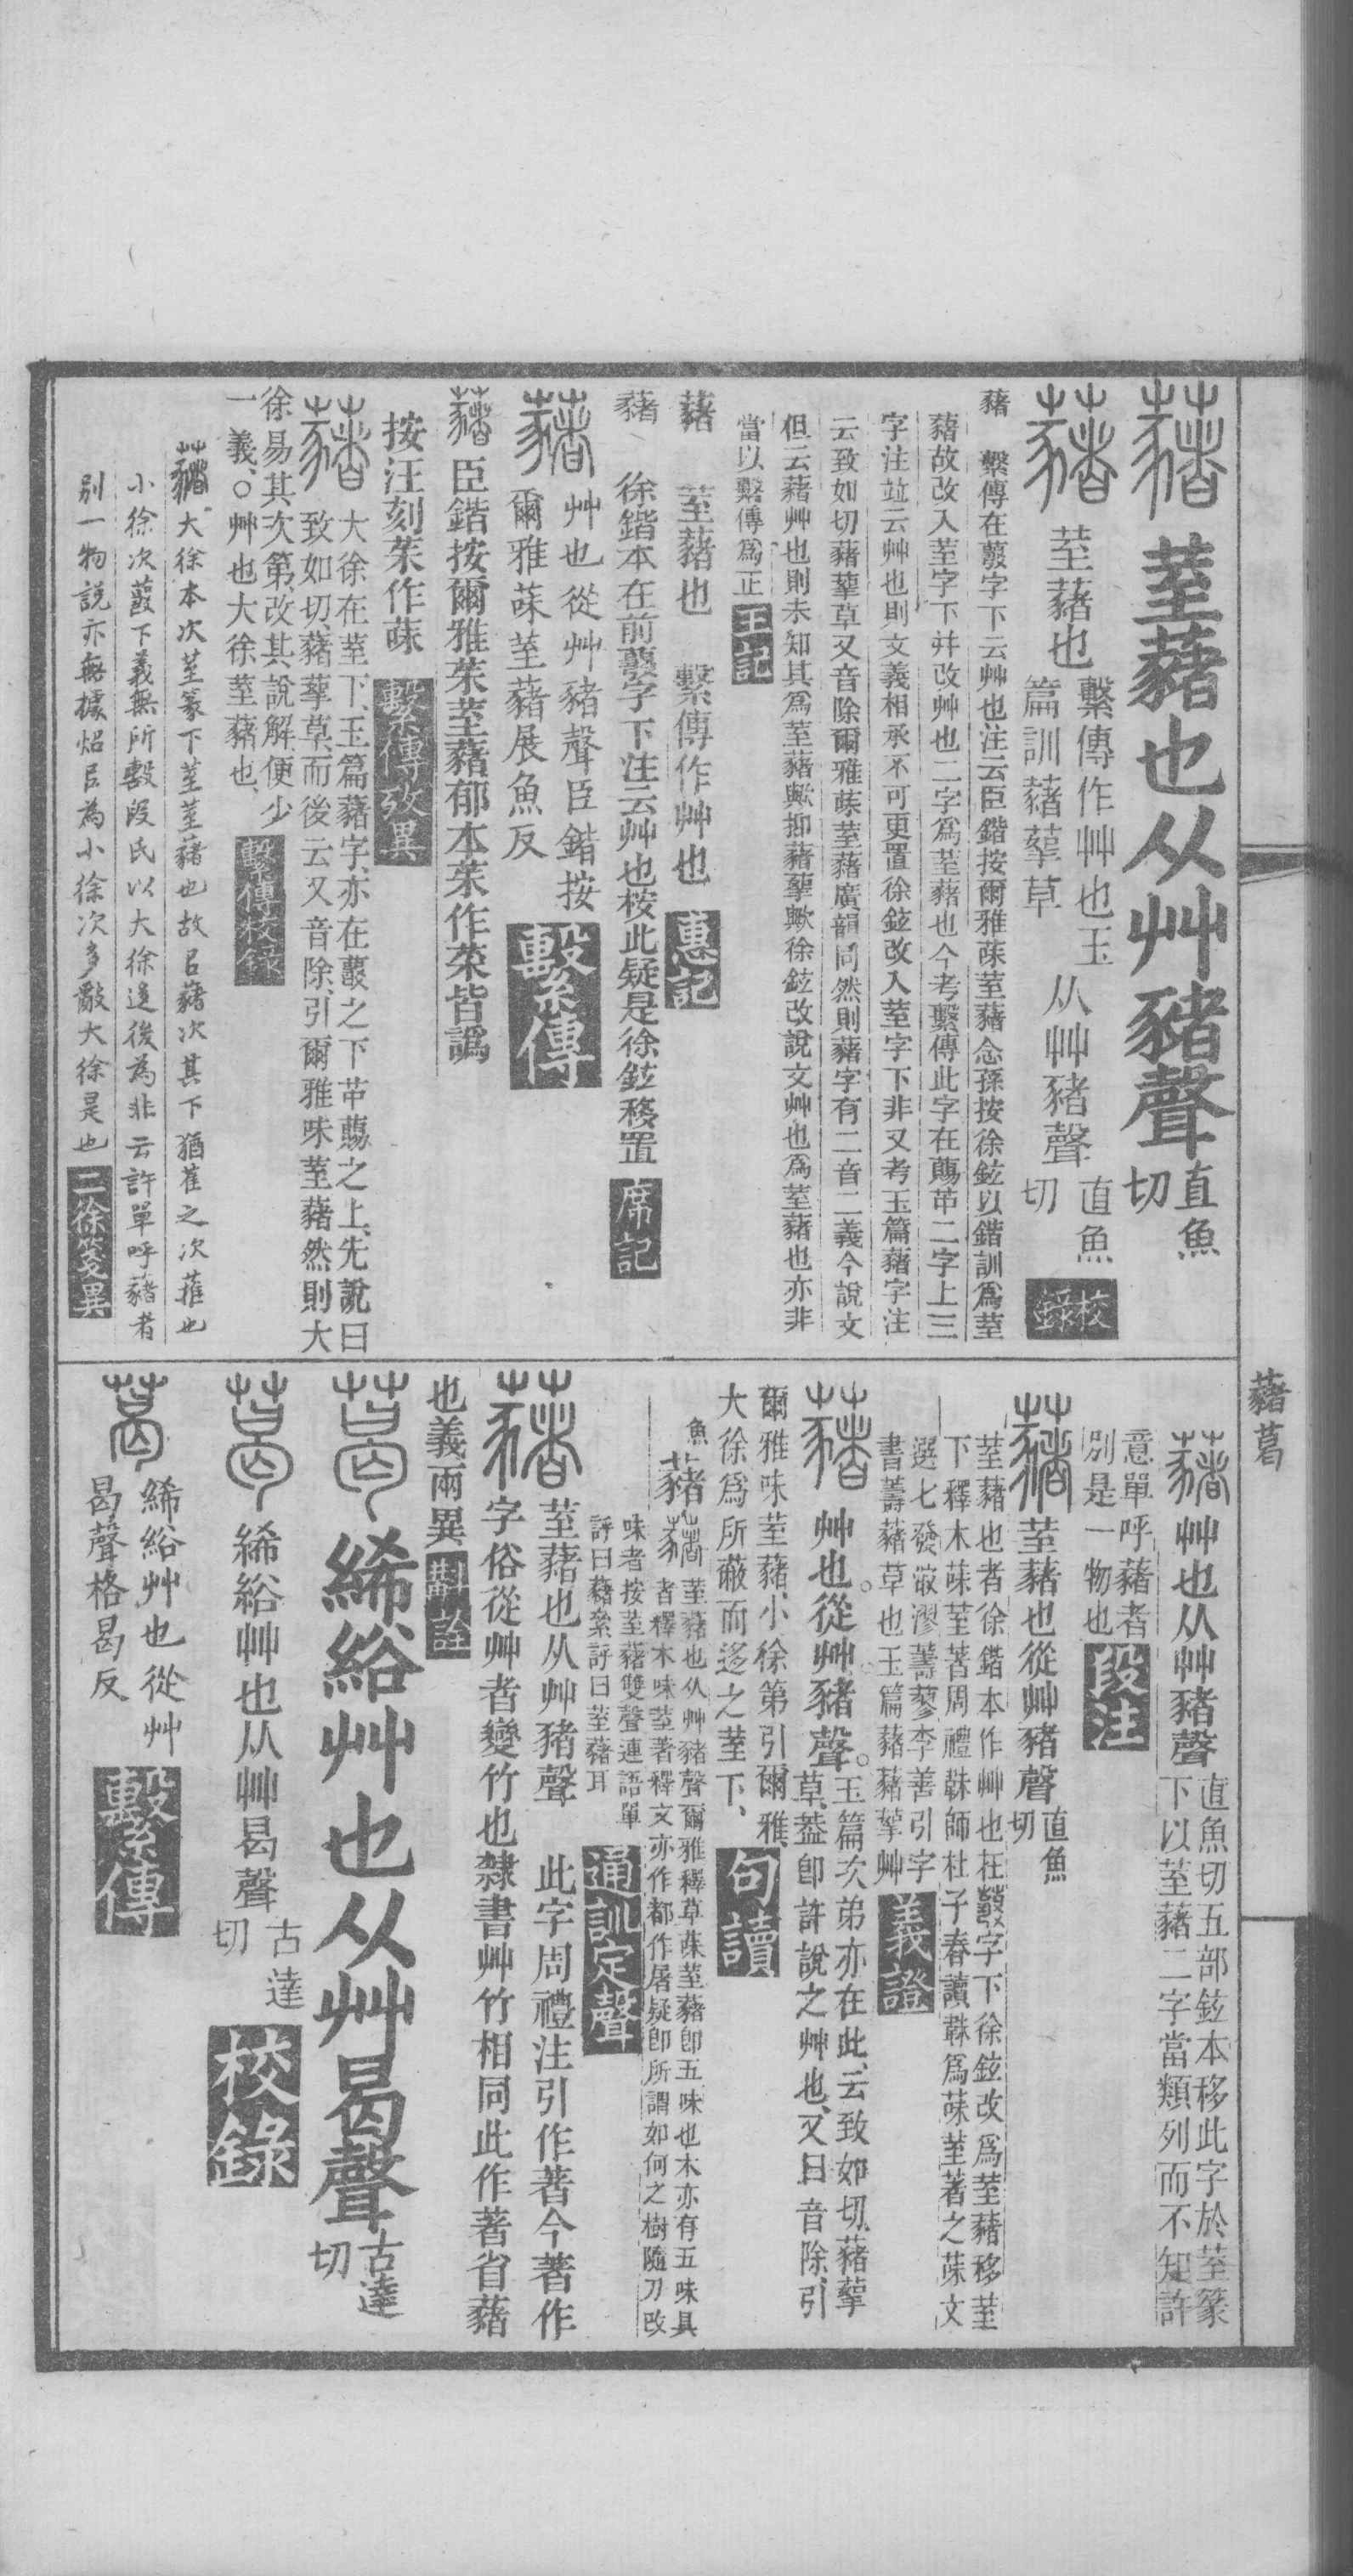 藸 荎藸也从艸豬聲 直魚切
藸 荎藸也 繫傳作艸也玉篇訓藸蒘草 从艸豬聲 直魚切 校錄
藸 繫傳在蘡字下云艸也注云臣鍇按爾雅菋荎藸念孫按徐鉉以鍇訓爲荎
藸故改入荎字下幷改艸也二字爲荎藸也今考繫傳此字在藸芇二字上三
字注竝云艸也則文義相承不可更置徐鉉改入荎字下非又考玉篇藸字注
云致如切藸蒘草又音除爾雅菋荎藸廣韻同然則藸字有二音二義今說文
但云藸艸也則未知其爲荎藸歟抑藸蒘歟徐鉉改說文艸也爲荎藸也亦非
當以繫傳爲正 王記
藸 荎藸也 繫傳作艸也 惠記
藸 徐鍇本在前蘡字下注云艸也桉此疑是徐鉉移置 席記
藸 艸也從艸豬聲臣鍇按
爾雅菋荎藸展魚反 繫傳
藸 臣鍇按爾雅茱荎藸郁本茱作菜皆譌
按汪刻茱作菋 繫傳攷異
藸 大徐在荎下、玉篇藸字、亦在蘡之下芇之上、先說曰
致如切、藸蒘草、而後云又音除、引爾雅味荎藸然則大
徐易其次第、改其說解、便少
一義、○艸也大徐荎藸也、 繫傳校錄
藸 大徐本次荎篆下荎荎藸也故㠯藸次其下猶萑之次蓷也
小徐次蘡下義無所繫段氏以大徐迻後為非云許單呼藸者
別一物說亦無據炤㠯為小徐次多散大徐是也 二徐箋異
藸葛
藸 艸也从艸豬聲 直魚切五部鉉本移此字於荎篆
下以荎藸二字當類列而不知許
意單呼藸者
別是一物也 段注
藸 荎藸也從艸豬聲 直魚切
荎藸也者徐鍇本作艸也在蘡字下徐鉉改爲荎藸移荎
下釋木菋荎著周禮韎師杜子春讀韎爲菋荎著之菋文
選七發漃漻薵蓼李善引字
書薵藸草也玉篇藸藸蒘艸 義證
藸 艸也。從艸。豬聲。 玉篇次弟亦在此、云致如切、藸蒘
草、葢卽許說之艸也、又曰音除、引
爾雅味荎藸、小徐第引爾雅、
大徐爲所蔽而迻之荎下、 句讀
魚 藸 荎藸也从艸豬聲爾雅釋草菋荎藸卽五味也木亦有五味具
者釋木味荎著釋文亦作都作屠疑卽所謂如何之樹隨刀改
味者按荎藸雙聲連語單
評曰藸絫評曰荎藸耳 通訓定聲
藸 荎藸也从艸豬聲 此字周禮注引作著今著作
字俗從艸者變竹也隸書艸竹相同此作著省藸
也義兩異 斠詮
葛 絺綌艸也从艸曷聲 古達切
葛 絺綌艸也从艸曷聲 古達切 校錄
葛 絺綌艸也從艸
曷聲格曷反 繫傳